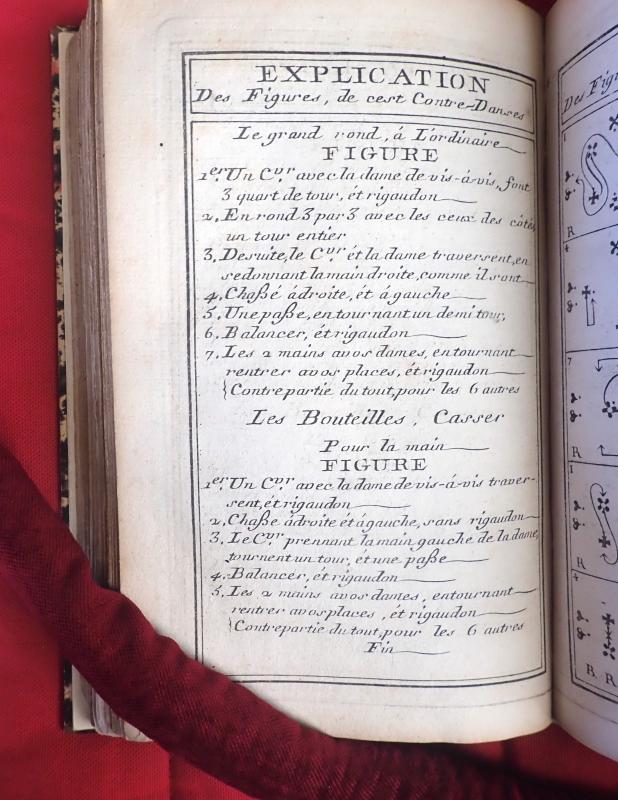 EXPLICATION
Des Figures, de cest Contre-Danses
Le grand rond, á L'ordinaire
FIGURE
1er. Un Cvr. avec la dame de vis-á-vis, font
3 quart de tour, ét rigaudon
2. En rond 3 par 3 avec les ceux des côtés
un tour entier
3. Desuite, le Cvr. ét la dame traversent, en
se donnant la main droite, comme il sont
4. Chaßé á droite, ét á gauche
5. Une paße, en tournant un demi tour,
6. Balancer, ét rigaudon
7. Les 2 mains a vos dames, en tournant
rentrer a vos places, ét rigaudon
{Contrepartie du tout, pour les 6 autres
Les Bouteilles, Casser
Pour la main
FIGURE
1er. Un Cvr. avec la dame de vis-á-vis traver-
sent, ét rigaudon
2. Chaße á droite ét á gauche, sans rigaudon
3. Le Cvr. prennant la main gauche de la dame,
tournent un tour, ét une paße
4. Balancer, ét rigaudon
5. Les 2 mains a vos dames, en tournant
rentrer a vos places, ét rigaudon
{Contrepartie du tout, pour les 6 autres
Fin
Des Figu
1
R
4
7
R
1
4
R R